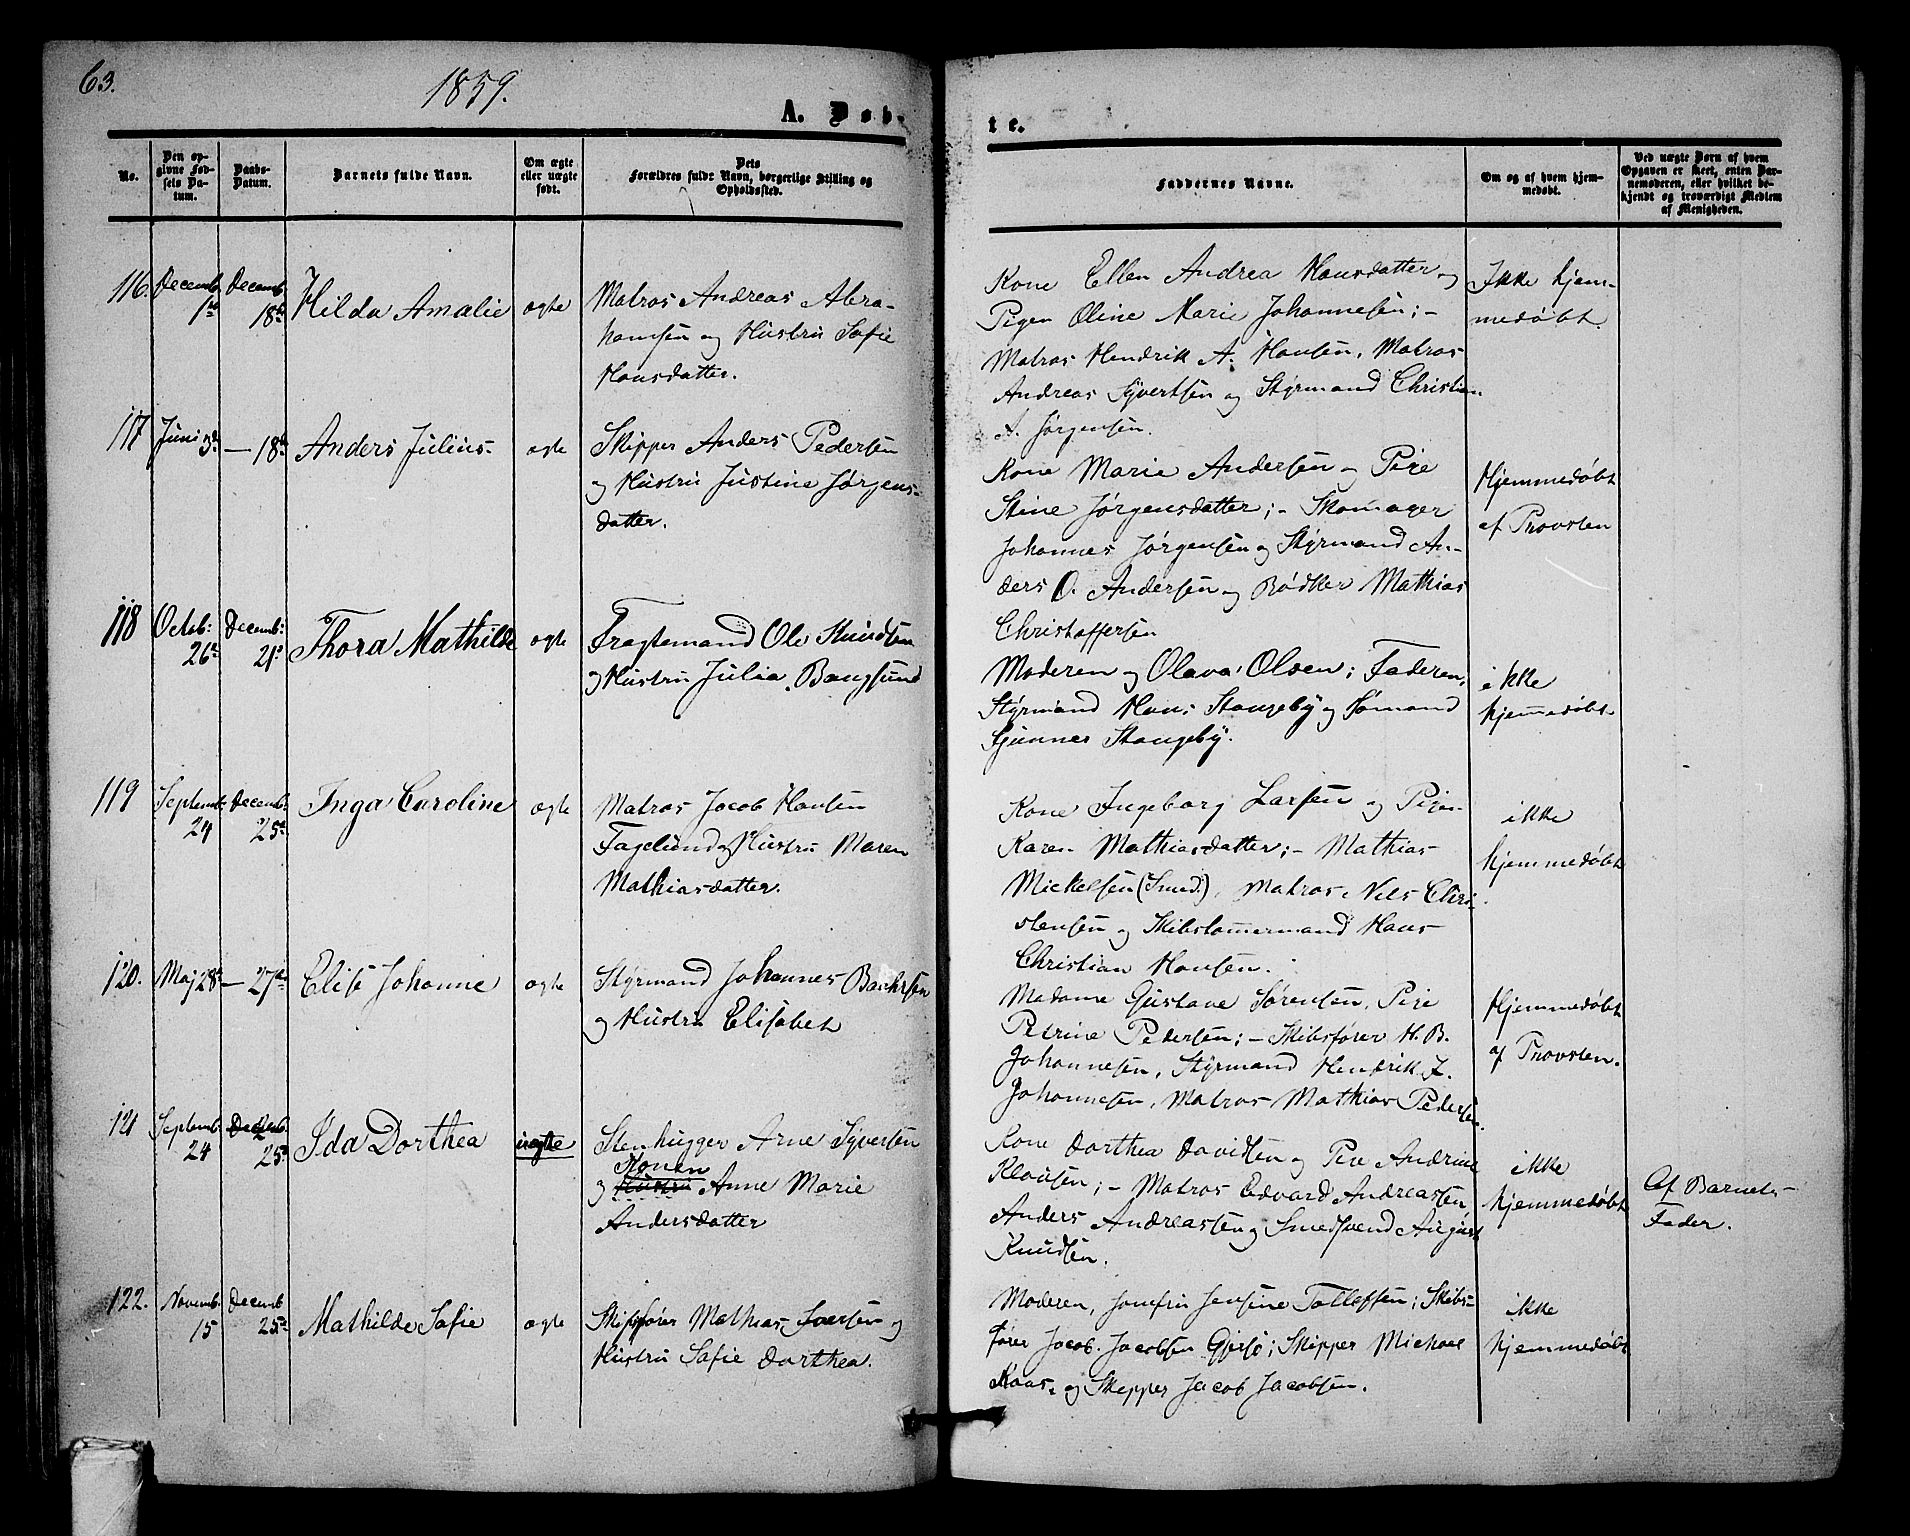 63.
1859.
A. Døb-
te.
No.
Den op-
givne Fød-
sels Da-
tum.
Daabs-
Datum.
Barnets fulde Navn.
Om ægte
eller uægte
født.
Dets
Forældres fulde Navn, borgerlige Stilling og
Opholdssted.
Faddernes Navne.
Om og af hvem hjem-
medøbt.
Ved uægte Børn af hvem
Opgaven er skeet, enten Bar-
nemoderen, eller hvilket be-
kjendt og troværdigt Medlem
af Menigheden.
116. Decemb. 1ste Decemb. 18de Hilda Amalie ægte
Matros Andreas Abra-
hamsen og Hustru Safie
Hansdatter.
Kone Ellen Andrea Hansdatter og
Pigen Oline Marie Johannesen; -
Matros Hendrik A. Hansen, Matros
Andreas Syvertsen og Styrmand Christian
A. Jørgensen.
Ikke hjem-
medøbt.
117 Juni 3de — 18de Anders Julius- ægte
Skipper Anders Pedersen
og Hustru Justine Jørgens-
datter.
Kone Marie Andersen og Pige
Stine Jørgensdatter; - Skomager
Johannes Jørgensen og Styrmand An-
ders O. Andersen og Bødker Mathias
Christoffersen
Hjemmedøbt
af Provsten
118 Octob: 26de Decemb: 21de Thora Mathilde ægte
Fragtemand Ole Knudsen
og Hustru Julia Bangsund
Moderen og Olava Olsen; Faderen,
Styrmand Hans Stangeby og Sømand
Gunner Stangeby.
ikke
hjemmedøbt
119 Septemb: 24 Decemb: 25de Inga Caroline ægte
Matros Jacob Hansen
Fagelund og Hustru Maren
Mathiasdatter.
Kone Ingeborg Larsen og Pigen
Karen Mathiasdatter; - Mathias
Mickelsen (Smed), Matros Nils Chri-
stensen og Skibstømmermand Hans
Christian Hansen.
ikke
hjemmedøbt
120. Maj 28de — 27de Elise Johanne ægte
Styrmand Johannes Bachesen
og Hustru Elisabet
Madame Gustave Sørensen, Pige
Petrine Pedersen; - Skibsfører H. B.
Johannesen, Styrmand Hendrik Z.
Johannesen, Matros Mathias Pedersen.
Hjemmedøbt
af Provsten.
121 Septemb. 24 Decemb. 25de Ida Dorthea uægte
Stenhugger Arne Syversen
Konen
og Hustru Anne Marie
Andersdatter
Kone Dorthea Davidsen og Pige Andrine
Klausen; - Matros Edvard Andreassen,
Anders Andreassen og Smedsvend August
Knudsen.
ikke
hjemmedøbt
Af Barnets
Fader.
122. Novemb. 15 Decemb 25de Mathilde Safie ægte
Skibsfører Mathias Iversen og
Hustru Safie Dorthea.
Moderen, Jomfru Jensine Tollefsen; Skibs-
fører Jacob Jacobsen Gjersø; Skipper Michael
Kaas, og Skipper Jacob Jacobsen.
ikke
hjemmedøbt